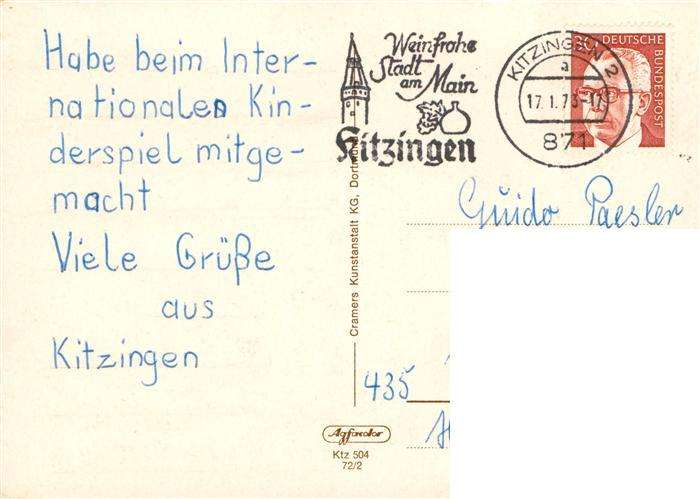 Habe beim Inter-
nationalen Kin-
derspiel mitge-
macht
Viele Grüße
aus
Kitzingen
Weinfrohe
Stadt
am Main
Kitzingen
KITZINGEN 2
a
17.1.73-17
871
30 DEUTSCHE
BUNDESPOST
Guido Paesler
435
Cramers Kunstanstalt KG, Dortmund
Agfacolor
Ktz 504
72/2